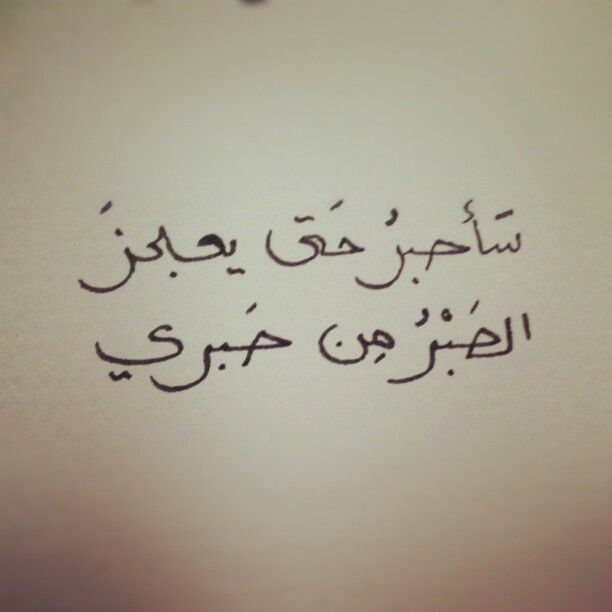 سَأَصبرُ حَتى يعجزَ
الصَبْرُ مِن صَبري